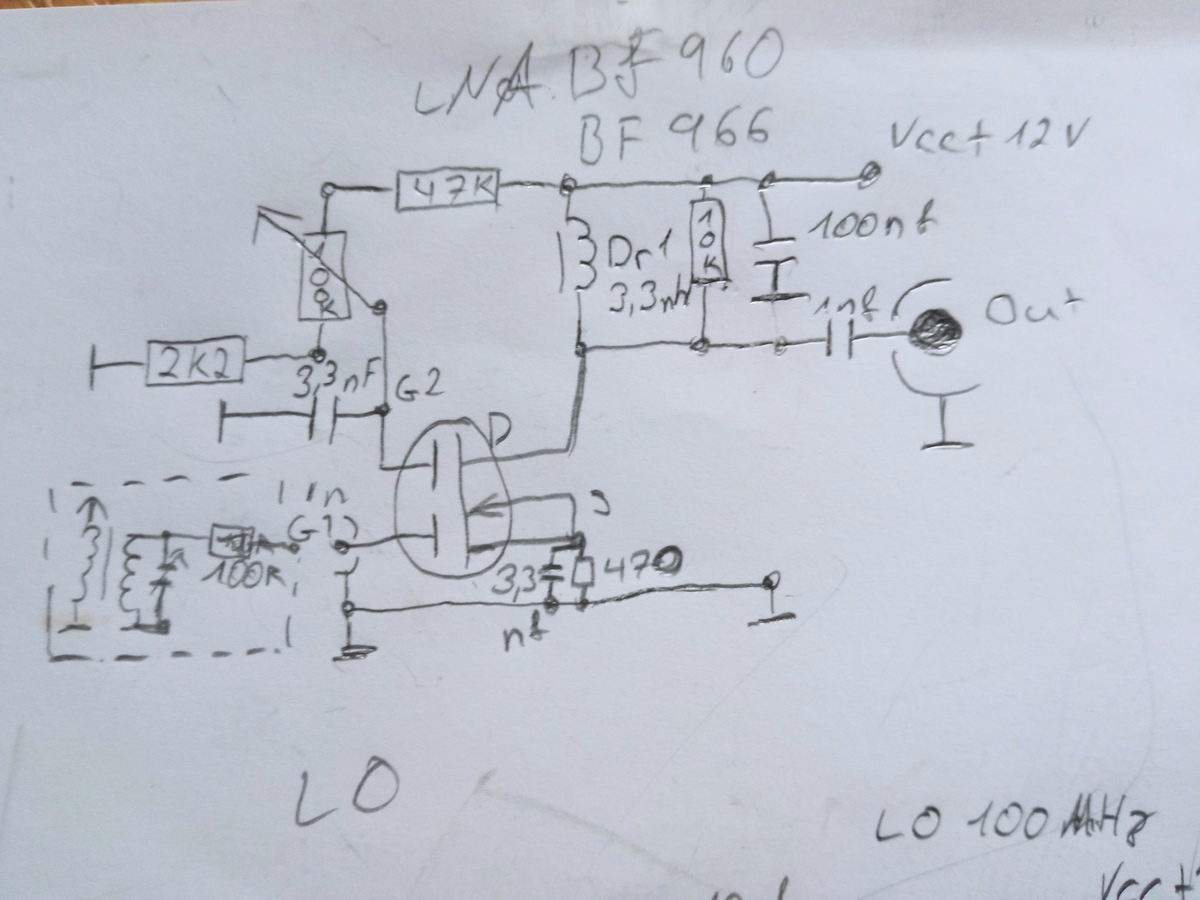 LNA BF 960
BF 966
Vcc+ 12V
47K
100nf
Dr1
10K
3,3nh
1nf
Out
2K2
3,3nF
G2
D
In
G1
S
100R
3,3
nf
470
LO
LO 100 MHz
Vcc +